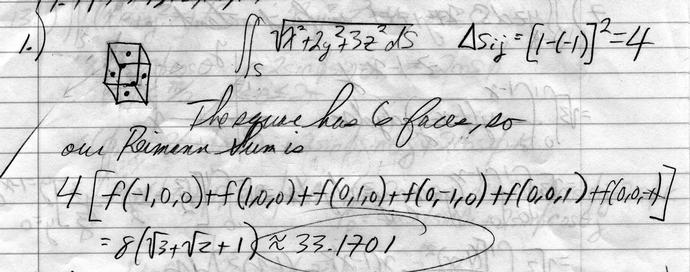 1.) ∬_S √(x²+2y²+3z²) dS ΔS_ij = [1-(-1)]² = 4
The square has 6 faces, so
our Reimann Sum is
4 [f(-1,0,0)+f(1,0,0)+f(0,1,0)+f(0,-1,0)+f(0,0,1)+f(0,0,-1)]
= 8(√3+√2+1) ≈ 33.1701